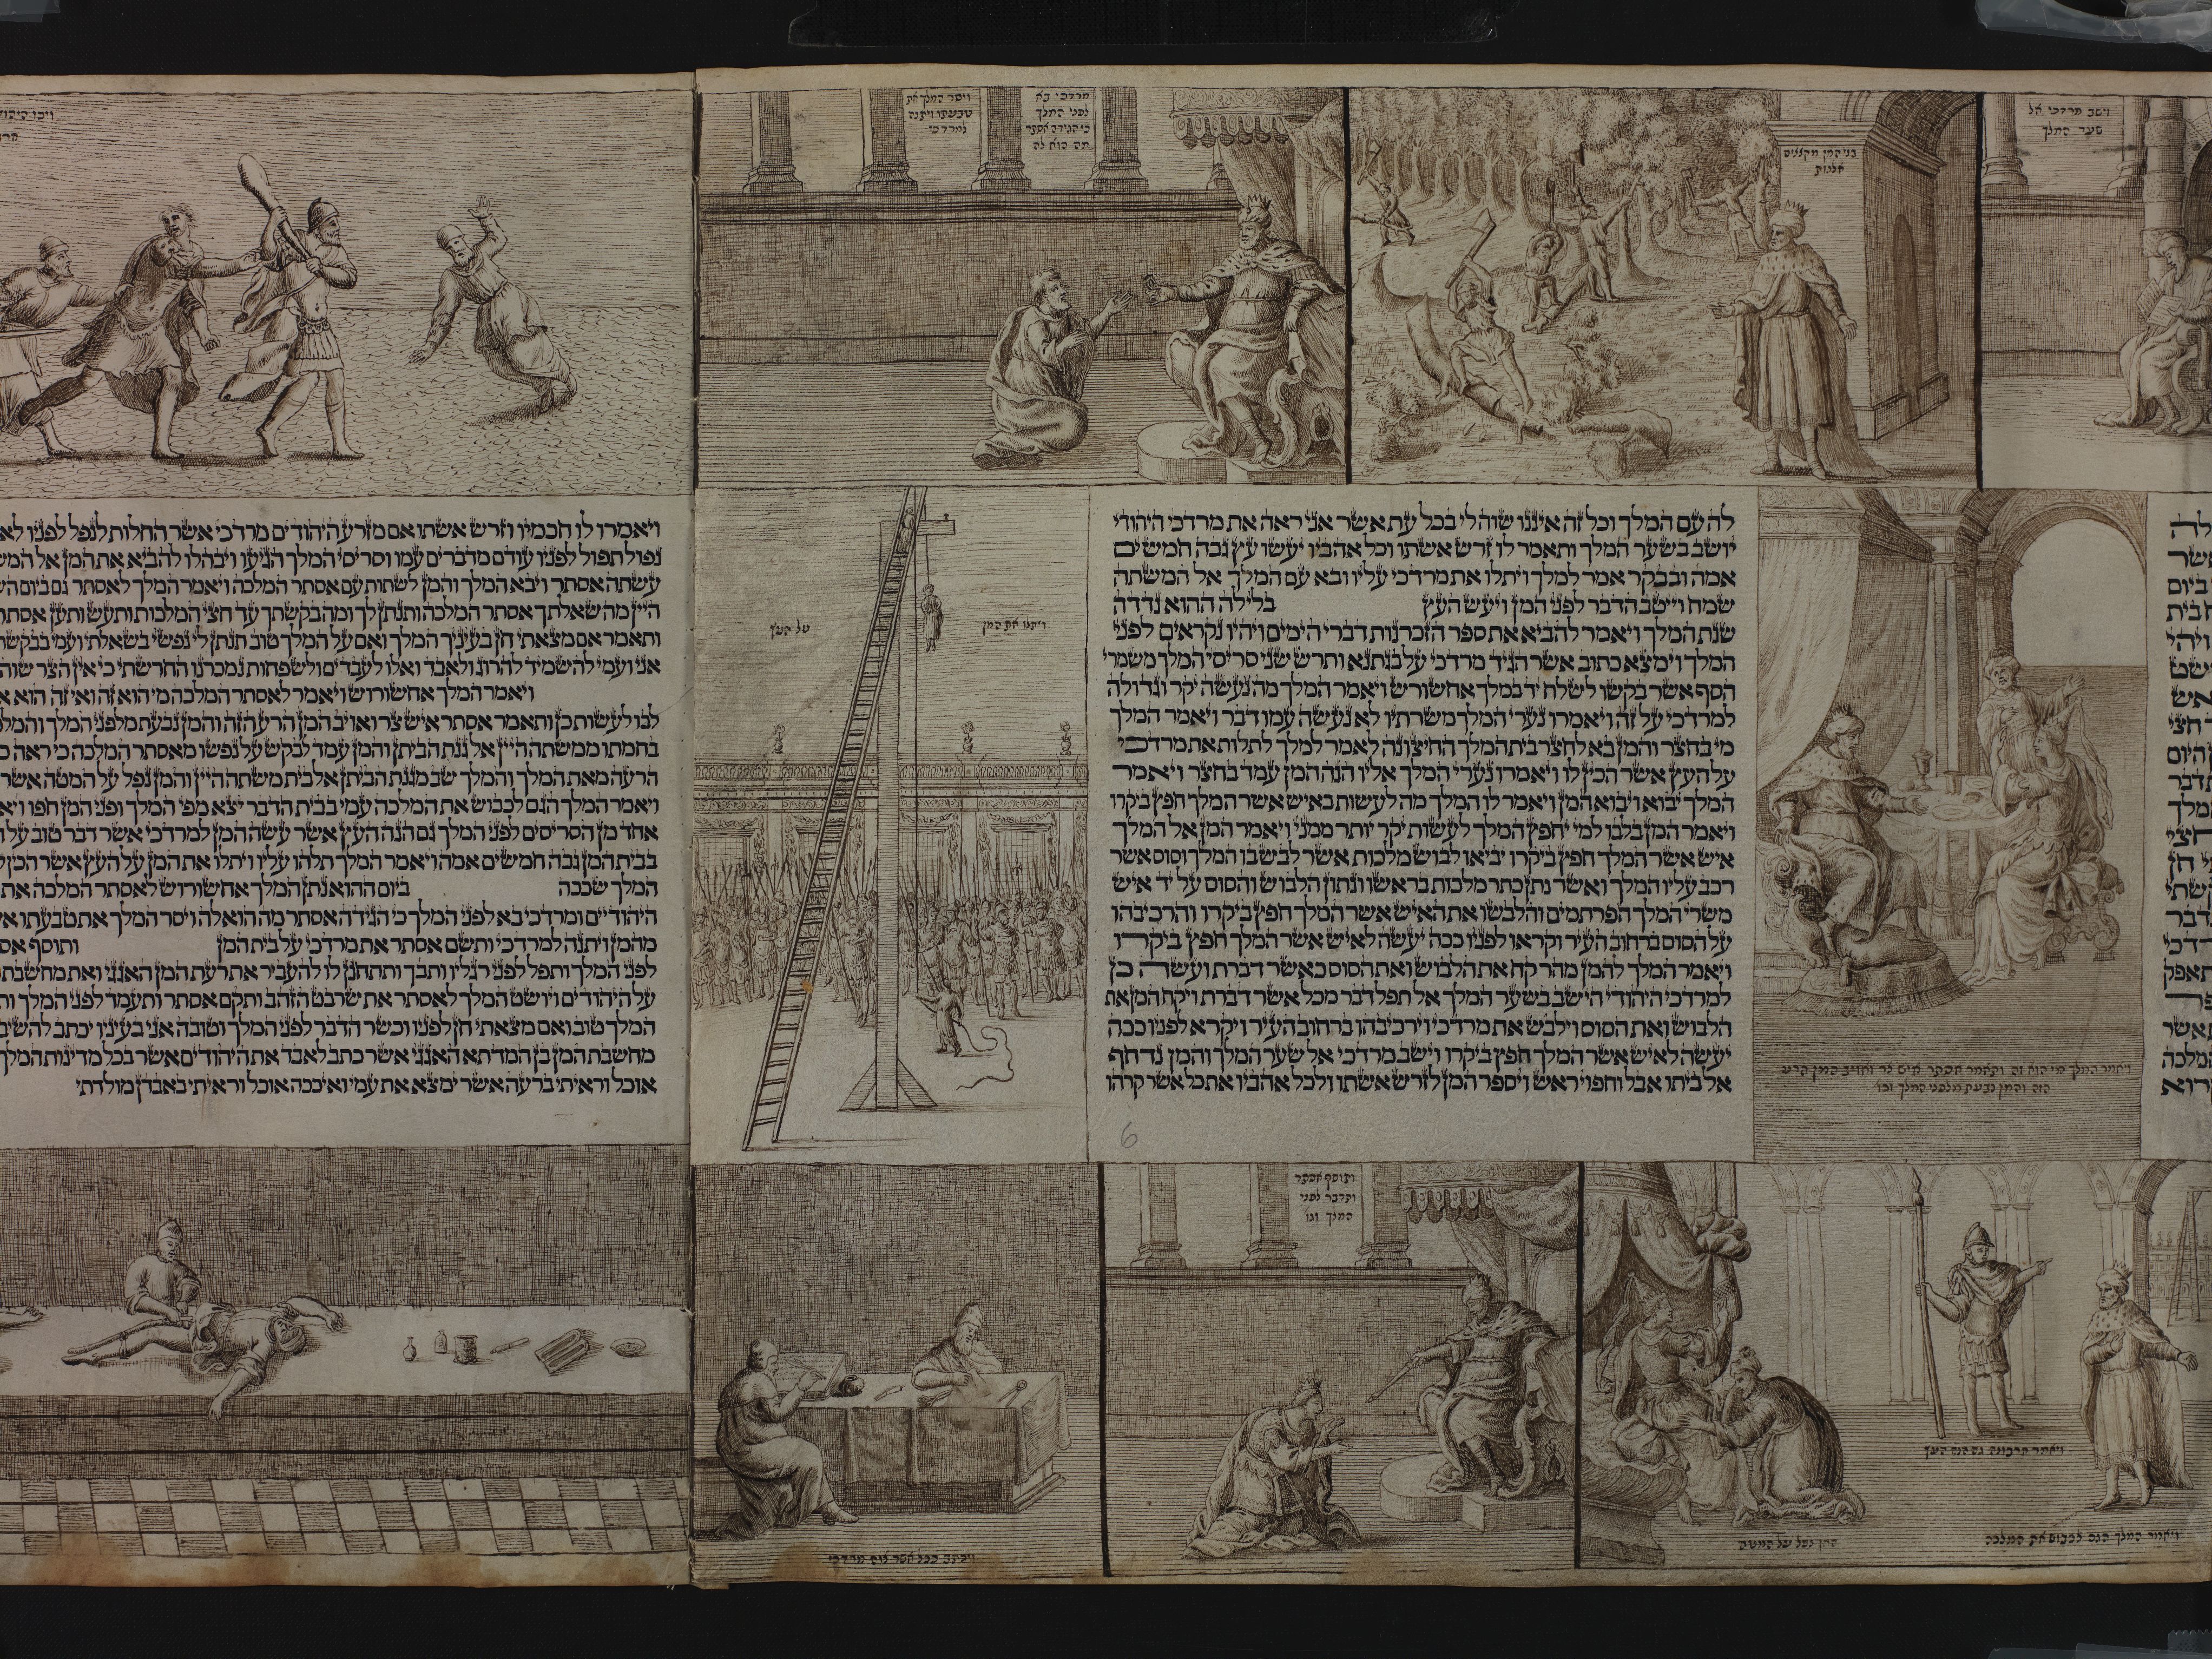 וישב מרדכי אל
שער המלך
בני המן מקללים
מרדכי בא
לפני המלך
כי הגידה אסתר
מה הוא לה
ויסר המלך את
טבעתו ויתנה
למרדכי
אשר
ביום
בית
ויהי
חצי
היום
חצי
חן
דבר
אשר
להעם המלך וכל זה איננו שוה לי בכל עת אשר אני ראה את מרדכי היהודי
יושב בשער המלך ותאמר לו זרש אשתו וכל אהביו יעשו עץ גבה חמשים
אמה ובבקר אמר למלך ויתלו את מרדכי עליו ובא עם המלך אל המשתה
שמח וייטב הדבר לפני המן ויעש העץ בלילה ההוא נדדה
שנת המלך ויאמר להביא את ספר הזכרנות דברי הימים ויהיו נקראים לפני
המלך וימצא כתוב אשר הגיד מרדכי על בגתנא ותרש שני סריסי המלך משמרי
הסף אשר בקשו לשלח יד במלך אחשורש ויאמר המלך מה נעשה יקר וגדולה
למרדכי על זה ויאמרו נערי המלך משרתיו לא נעשה עמו דבר ויאמר המלך
מי בחצר והמן בא לחצר בית המלך החיצונה לאמר למלך לתלות את מרדכי
על העץ אשר הכין לו ויאמרו נערי המלך אליו הנה המן עמד בחצר ויאמר
המלך יבוא ויבוא המן ויאמר לו המלך מה לעשות באיש אשר המלך חפץ ביקרו
ויאמר המן בלבו למי יחפץ המלך לעשות יקר יותר ממני ויאמר המן אל המלך
איש אשר המלך חפץ ביקרו יביאו לבוש מלכות אשר לבש בו המלך וסוס אשר
רכב עליו המלך ואשר נתן כתר מלכות בראשו ונתון הלבוש והסוס על יד איש
משרי המלך הפרתמים והלבשו את האיש אשר המלך חפץ ביקרו והרכיבהו
על הסוס ברחוב העיר וקראו לפניו ככה יעשה לאיש אשר המלך חפץ ביקרו
ויאמר המלך להמן מהר קח את הלבוש ואת הסוס כאשר דברת ועשה כן
למרדכי היהודי היושב בשער המלך אל תפל דבר מכל אשר דברת ויקח המן את
הלבוש ואת הסוס וילבש את מרדכי וירכיבהו ברחוב העיר ויקרא לפניו ככה
יעשה לאיש אשר המלך חפץ ביקרו וישב מרדכי אל שער המלך והמן נדחף
אל ביתו אבל וחפוי ראש ויספר המן לזרש אשתו ולכל אהביו את כל אשר קרהו
6
ויאמר המלך מי הוא זה ותאמר אסתר איש צר ואויב המן הרע
הזה והמן נבעת מלפני המלך וכו
ויתלו את המן
על העץ
ויכו היהוד
ויאמרו לו חכמיו וזרש אשתו אם מזרע היהודים מרדכי אשר החלות לנפל לפניו לא
נפול תפול לפניו עודם מדברים עמו וסריסי המלך הגיעו ויבהלו להביא את המן אל המש
עשתה אסתר ויבא המלך והמן לשתות עם אסתר המלכה ויאמר המלך לאסתר גם ביום הש
היין מה שאלתך אסתר המלכה ותנתן לך ומה בקשתך עד חצי המלכות ותעש ותען אסתר
ותאמר אם מצאתי חן בעיניך המלך ואם על המלך טוב תנתן לי נפשי בשאלתי ועמי בבקשת
אני ועמי להשמיד להרוג ולאבד ואלו לעבדים ולשפחות נמכרנו החרשתי כי אין הצר שוה
ויאמר המלך אחשורוש ויאמר לאסתר המלכה מי הוא זה ואי זה הוא א
לבו לעשות כן ותאמר אסתר איש צר ואויב המן הרע הזה והמן נבעת מלפני המלך והמלכ
בחמתו ממשתה היין אל גנת הביתן והמן עמד לבקש על נפשו מאסתר המלכה כי ראה כ
הרעה מאת המלך והמלך שב מגנת הביתן אל בית משתה היין והמן נפל על המטה אשר
ויאמר המלך הגם לכבוש את המלכה עמי בבית הדבר יצא מפי המלך ופני המן חפו ויא
אחד מן הסריסים לפני המלך גם הנה העץ אשר עשה המן למרדכי אשר דבר טוב על ה
בבית המן גבה חמשים אמה ויאמר המלך תלהו עליו ויתלו את המן על העץ אשר הכין ל
המלך שככה ביום ההוא נתן המלך אחשורוש לאסתר המלכה את
היהודיים ומרדכי בא לפני המלך כי הגידה אסתר מה הוא לה ויסר המלך את טבעתו א
מהמן ויתנה למרדכי ותשם אסתר את מרדכי על בית המן ותוסף אס
לפני המלך ותפל לפני רגליו ותבך ותתחנן לו להעביר את רעת המן האגגי ואת מחשבת
על היהודיים ויושט המלך לאסתר את שרבט הזהב ותקם אסתר ותעמד לפני המלך ות
המלך טוב ואם מצאתי חן לפניו וכשר הדבר לפני המלך וטובה אני בעיניו יכתב להשיב
מחשבת המן בן המדתא האגגי אשר כתב לאבד את היהודים אשר בכל מדינות המלך
אוכל וראיתי ברעה אשר ימצא את עמי ואיככה אוכל וראיתי באבדן מולדתי
ויאמר חרבונה גם הנה העץ
ויאמר המלך הגם לכבוש את המלכה
המן נפל על המטה
ותוסף אסתר
ותדבר לפני
המלך וגו
ויכתב ככל אשר צוה מרדכי